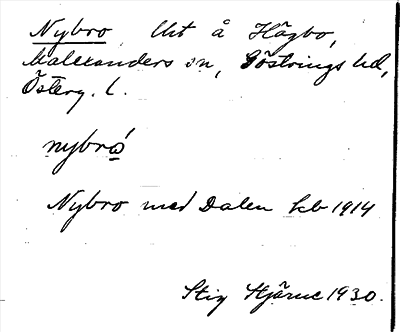 Nybro, Utt å Högbo,
Malexanders sn, Göstrings hd,
Österg. l.
nybrò́
Nybro med Dalen kb 1914
Stig Hjärne 1930.